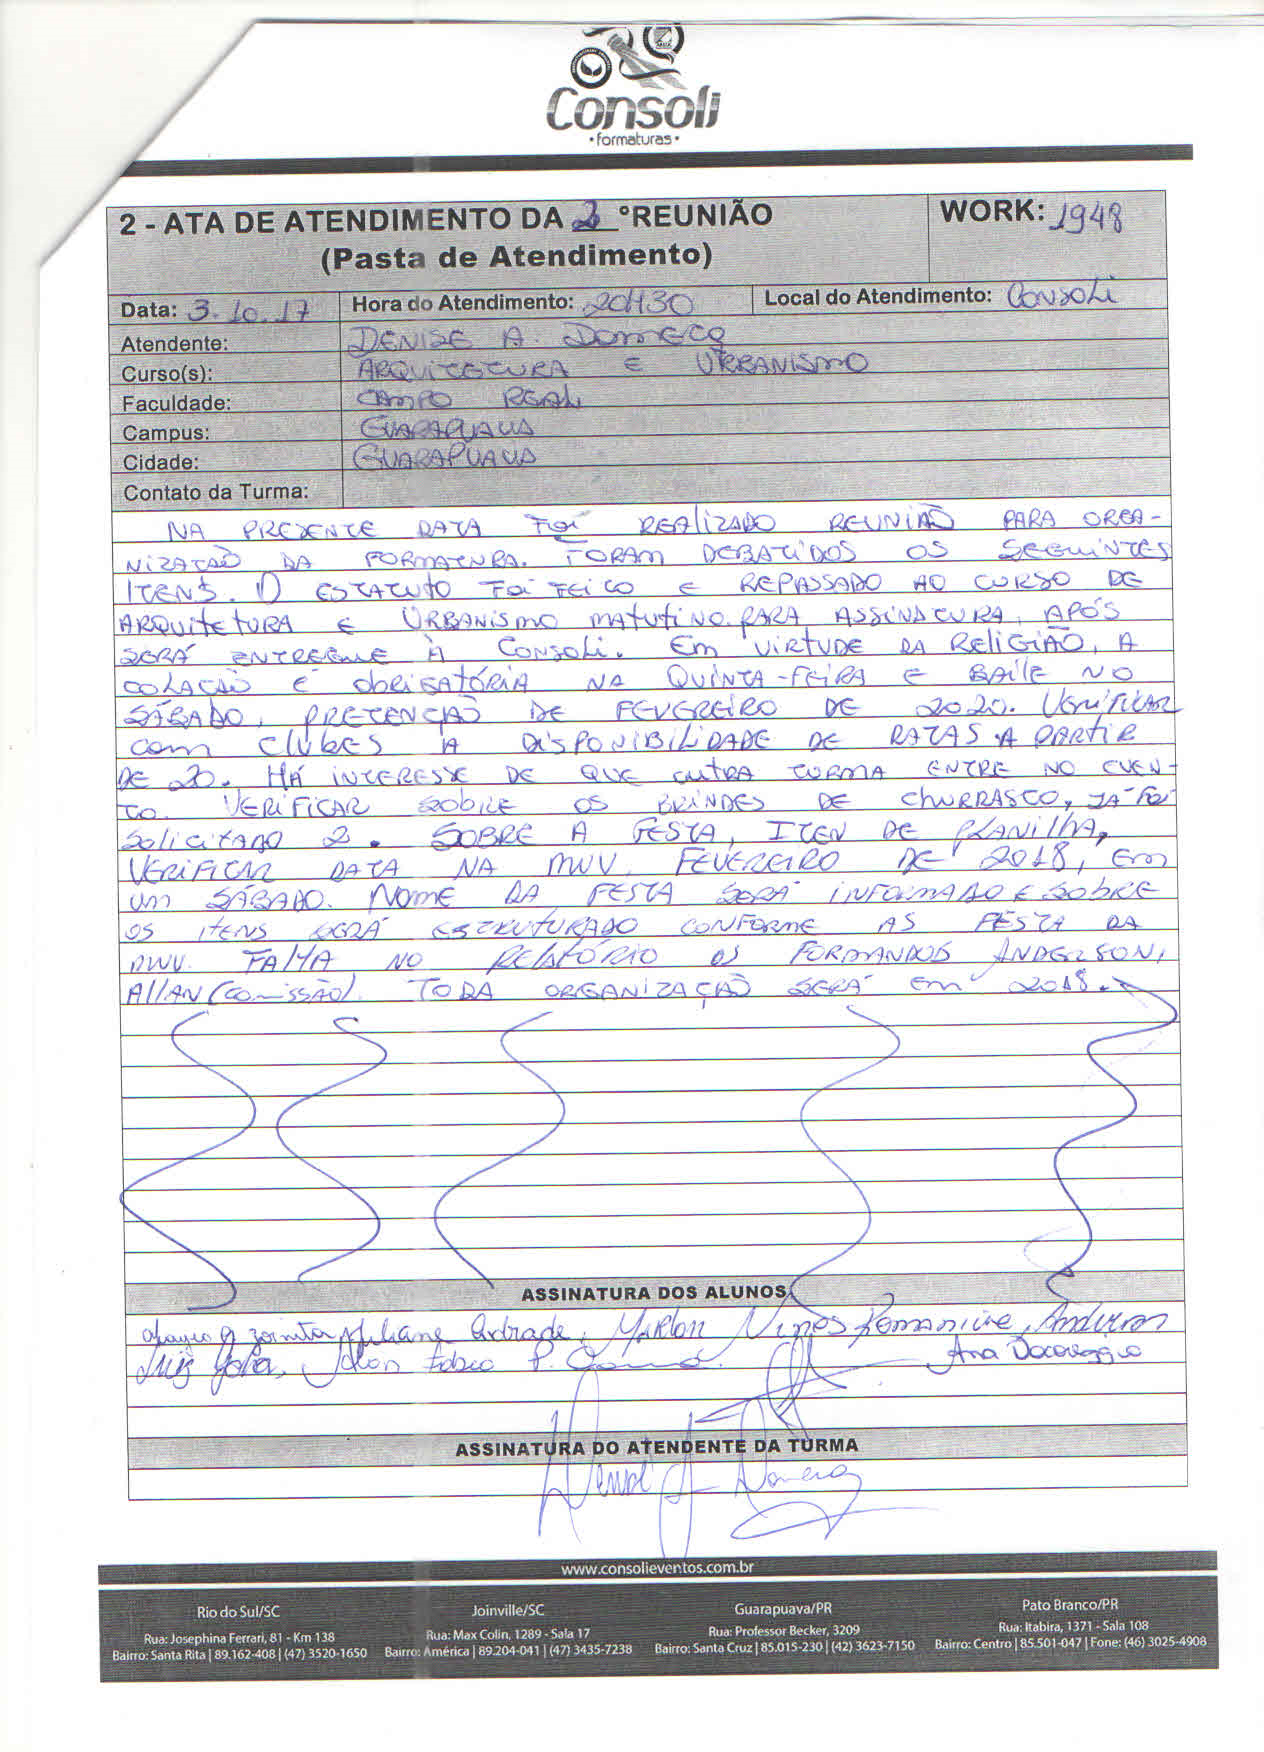 Consoli
•formaturas•
2 - ATA DE ATENDIMENTO DA 2 ºREUNIÃO
(Pasta de Atendimento)
WORK: 1948
Data: 3.10.17 Hora do Atendimento: 20H30 Local do Atendimento: Consoli
Atendente: DENISE A. Domecq
Curso(s): ARQUITETURA E URBANISMO
Faculdade: CAMPO REAL
Campus: GUARAPUAVA
Cidade: GUARAPUAVA
Contato da Turma:
NA PRESENTE DATA FOI REALIZADO REUNIÃO PARA ORGA-
NIZAÇÃO DA FORMATURA. FORAM DEBATIDOS OS SEGUINTES
ITENS. O ESTATUTO FOI FEITO E REPASSADO AO CURSO DE
ARQUITETURA E URBANISMO MATUTINO PARA ASSINATURA, APÓS
SERÁ ENTREGUE À CONSOLI. EM VIRTUDE DA RELIGIÃO, A
COLAÇÃO É OBRIGATÓRIA NA QUINTA-FEIRA E BAILE NO
SÁBADO, PRETENÇÃO DE FEVEREIRO DE 2020. VERIFICAR
COM CLUBES A DISPONIBILIDADE DE DATAS A PARTIR
DE 20. HÁ INTERESSE DE QUE OUTRA TURMA ENTRE NO EVEN-
TO. VERIFICAR SOBRE OS BRINDES DE CHURRASCO, JÁ FOI
SOLICITADO 2. SOBRE A FESTA, ITEN DE PLANILHA,
VERIFICAR DATA NA MWV, FEVEREIRO DE 2018, EM
UM SÁBADO. NOME DA FESTA SERÁ INFORMADO E SOBRE
OS ITENS SERÁ ESTRUTURADO CONFORME AS FESTA DA
MWV. FALTA NO RELATÓRIO OS FORMANDOS ANDERSON,
ALLAN (COMISSÃO). TODA ORGANIZAÇÃO SERÁ EM 2018.
ASSINATURA DOS ALUNOS
Juliane Andrade, Marlon Nunes Anderson
Luiz Fabio P. Ana
ASSINATURA DO ATENDENTE DA TURMA
www.consolieventos.com.br
Rio do Sul/SC
Rua: Josephina Ferrari, 81 - Km 138
Bairro: Santa Rita | 89.162-408 | (47) 3520-1650
Joinville/SC
Rua: Max Colin, 1289 - Sala 17
Bairro: América | 89.204-041 | (47) 3435-7238
Guarapuava/PR
Rua: Professor Becker, 3209
Bairro: Santa Cruz | 85.015-230 | (42) 3623-7150
Pato Branco/PR
Rua: Itabira, 1371 - Sala 108
Bairro: Centro | 85.501-047 | Fone: (46) 3025-4908